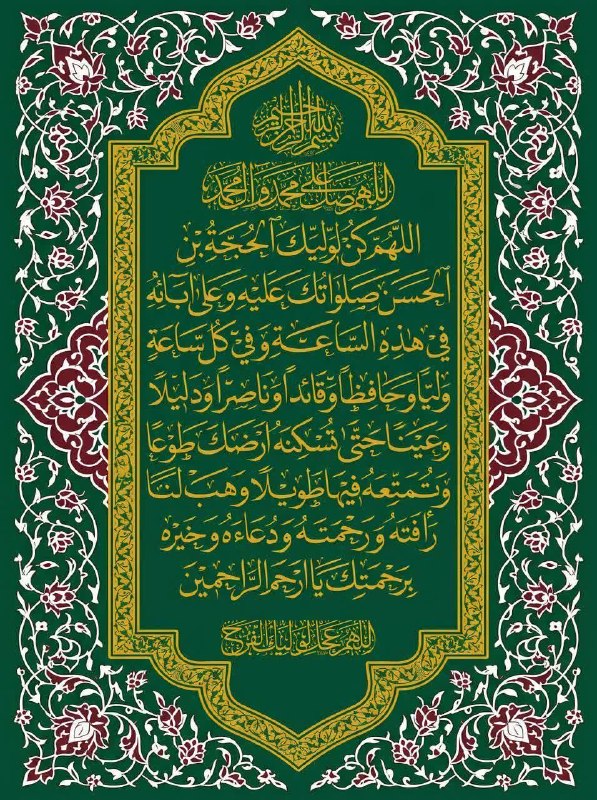 بسم الله الرحمن الرحيم
اللهم صل على محمد وآل محمد
اللَّهُمَّ كُنْ لِوَلِيِّكَ الحُجَّةِ بْنِ
الحَسَنِ صَلَوَاتُكَ عَلَيْهِ وَعَلَى ابَائِهِ
فِي هٰذِهِ السَّاعَةِ وَفِي كُلِّ سَّاعَةٍ
وَلِيًّا وَحَافِظًا وَّقَائِدًا وَنَاصِرًا وَدَلِيْلًا
وَعَيْنًا حَتَّى تُسْكِنَهُ ارْضَكَ طَوْعًا
وَتُمَتِّعَهُ فِيهَا طَوِيْلًا وَهَبْ لَنَا
رَأفَتَهُ وَرَحْمَتَهُ وَدُعَاءَهُ وَخَيْرَهُ
بِرَحْمَتِكَ يَا ارْحَمَ الرَّاحِمِيْنَ
اللهم عجل لوليك الفرج